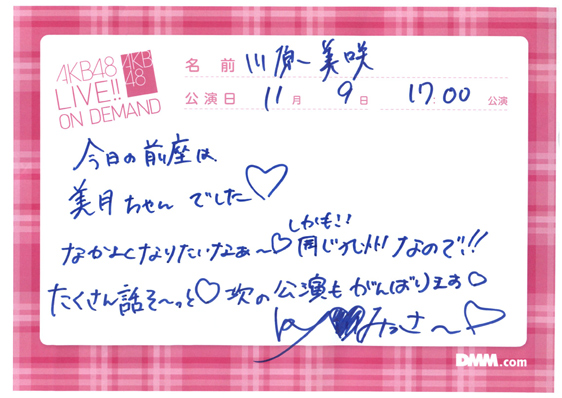 AKB48
LIVE!!
ON DEMAND
AKB
48
名前 川原美咲
公演日 11月 9日 17:00 公演
今日の前座は
美月ちゃん でした♡
なかよくなりたいなぁ〜♡ しかも!! 同じ九州なので!!
たくさん話そ〜っと♡ 次の公演もがんばります♡
by みっさ〜♡
DMM.com